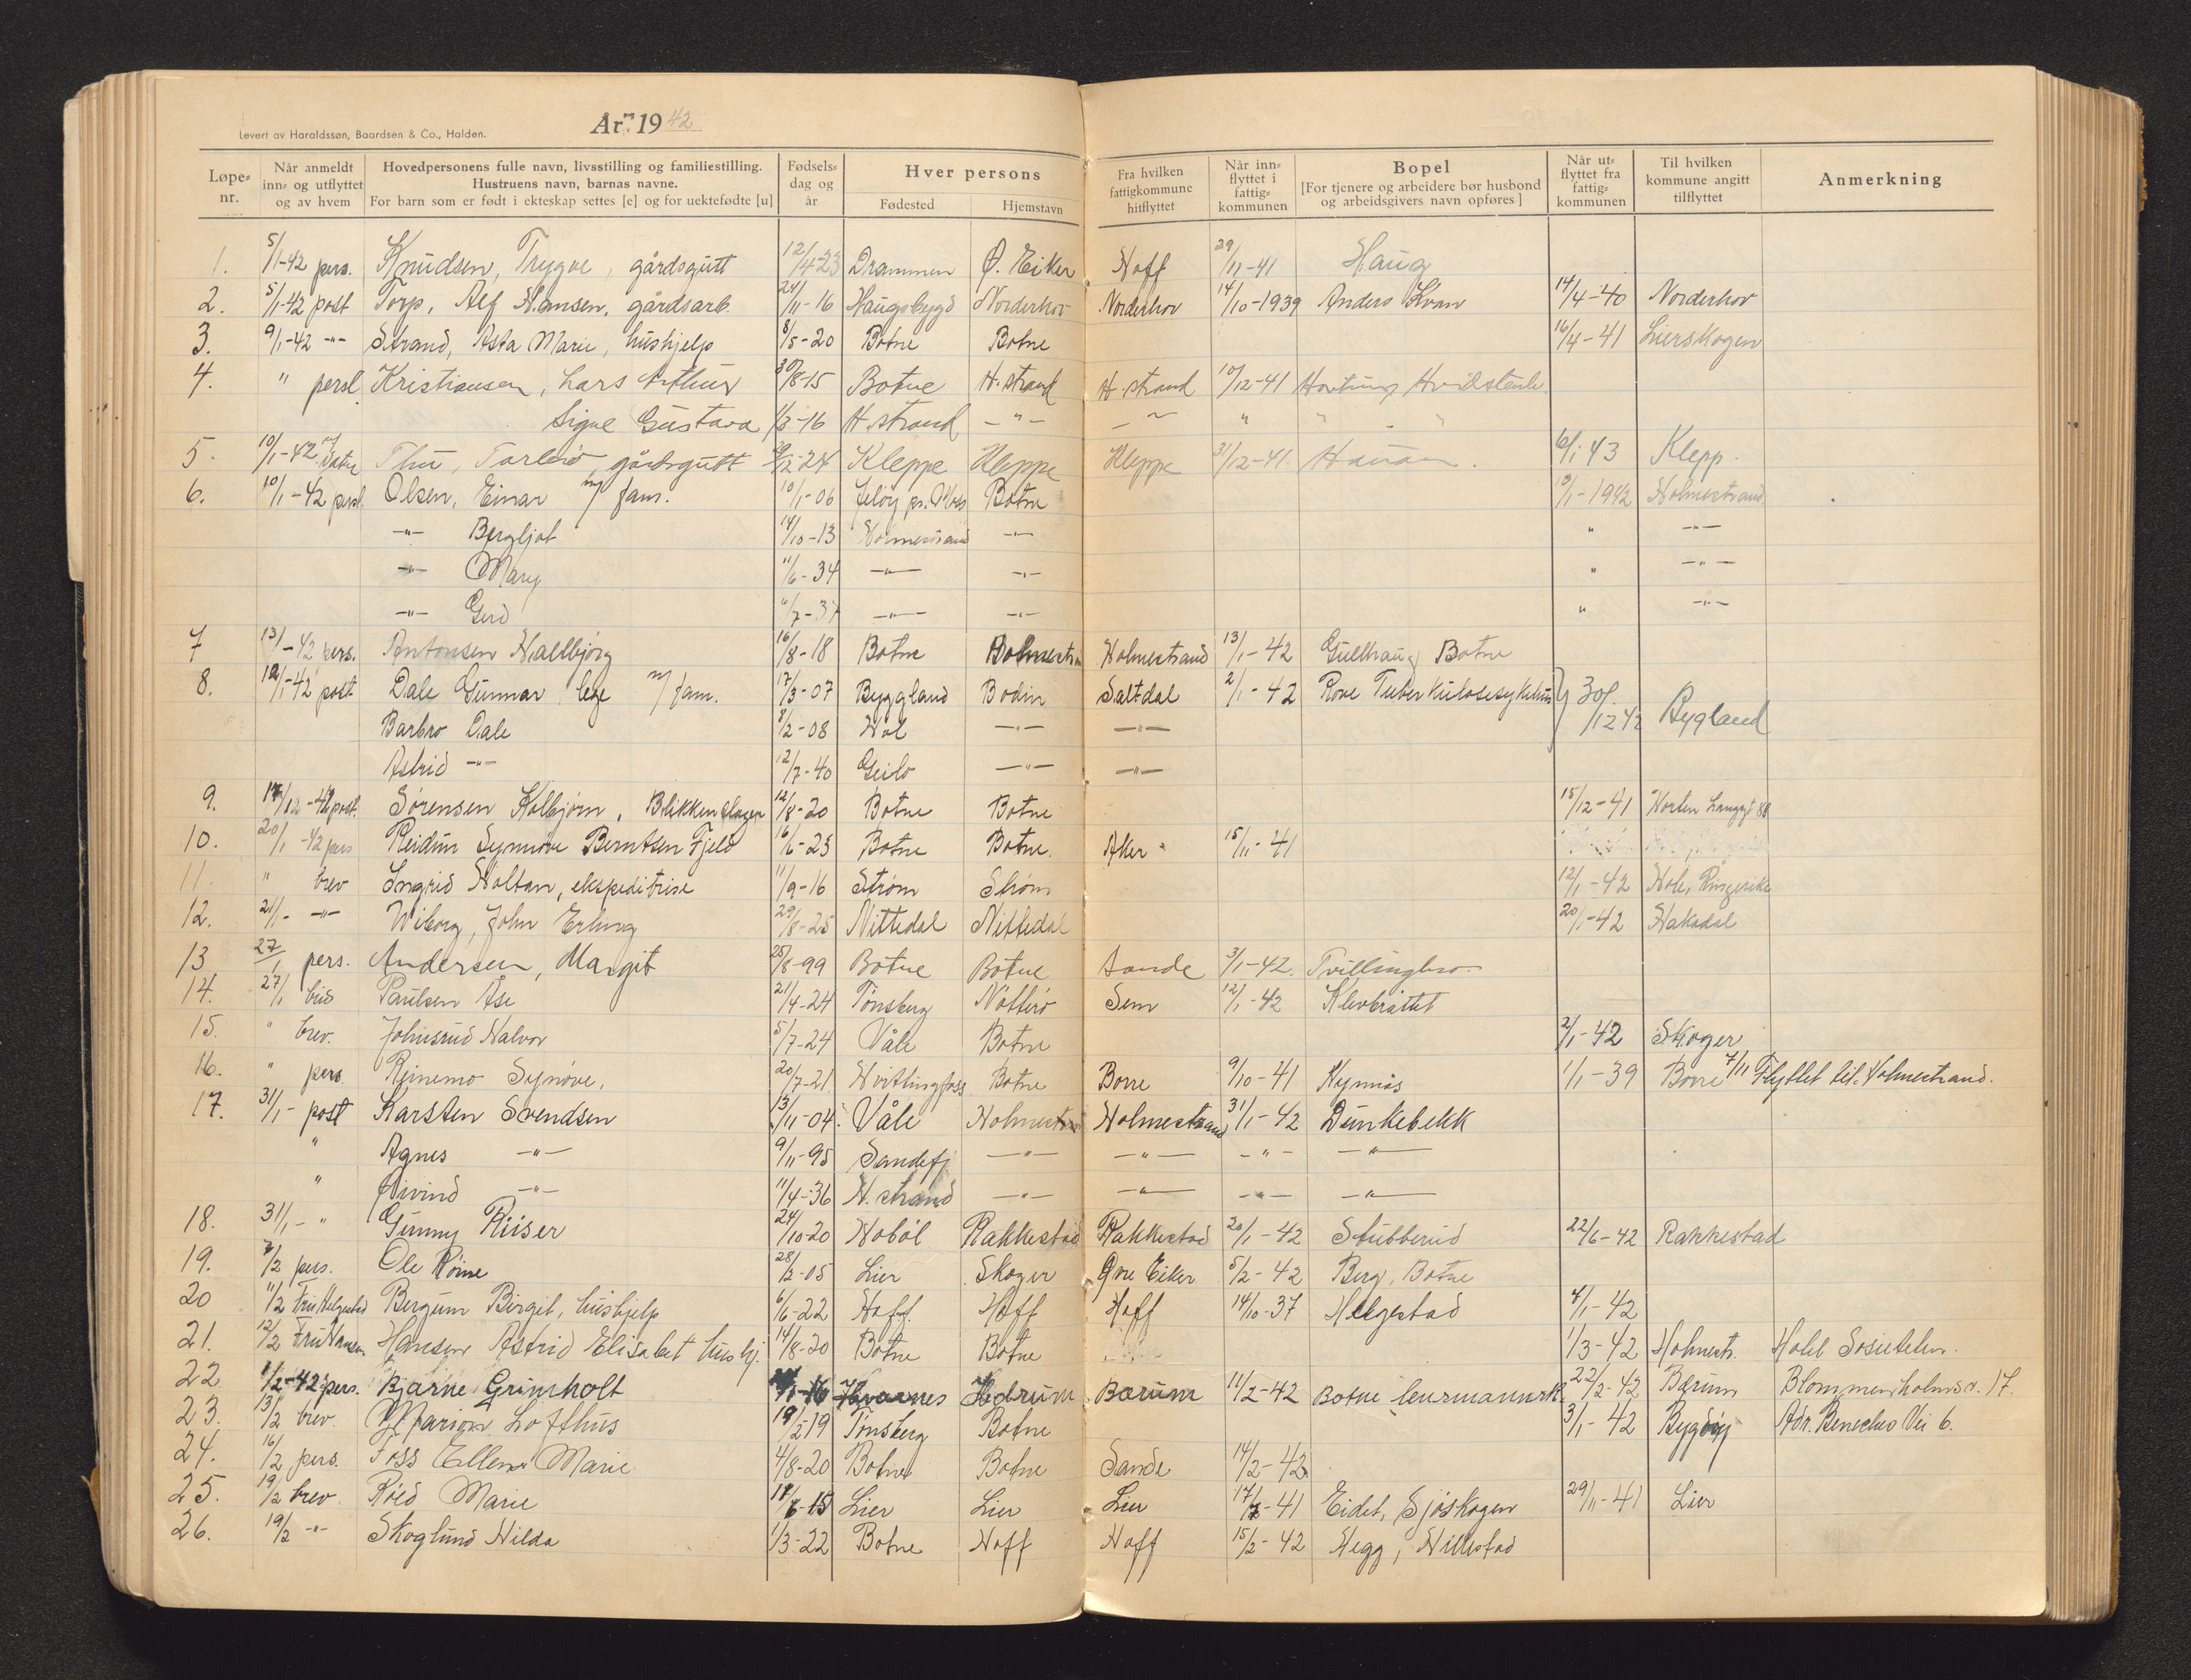 Levert av Haraldssøn, Baardsen & Co., Halden.
År 1942
Løpe-nr. | Når anmeldt inn- og utflyttet og av hvem | Hovedpersonens fulle navn, livsstilling og familiestilling. Hustruens navn, barnas navne. For barn som er født i ekteskap settes [e] og for uektefødte [u] | Fødsels-dag og år | Hver persons Fødested | Hjemstavn | Fra hvilken fattigkommune hitflyttet | Når inn-flyttet i fattig-kommunen | Bopel [For tjenere og arbeidere bør husbond og arbeidsgivers navn opføres] | Når ut-flyttet fra fattig-kommunen | Til hvilken kommune angitt tilflyttet | Anmerkning
1. 5/1-42 pers. Knudsen, Trygve, gårdsgutt 12/4-23 Drammen Ø. Eiker Hoff 29/11-41 Haug
2. 5/1-42 post Torp, Alf Hansen, gårdsarb. 24/11-16 Haugsbygd Norderhov Norderhov 14/10-1939 Anders Kvan 14/4-40 Norderhov
3. 9/1-42 -"- Strand, Asta Marie, hushjelp 8/5-20 Botne Botne 16/4-41 Lierskogen
4. " persl Kristiansen, Lars Arthur 30/8-15 Botne H.strand H.strand 10/12-41 Hvidsten
Signe Gustava 1/3-16 H.strand -"- -"- " " - "
5. 10/1-42 Thu, Torleiv, gårdsgutt 29/12-24 Kleppe Kleppe Kleppe 31/12-41. 6/1-43 Klepp.
6. 10/1-42 persl. Olsen, Einar m/ fam. 10/1-06 Jeløy pr. Moss Botne 10/1-1942 Holmestrand
-"- Bergljot 14/10-13 Holmestrand -"- " -"-
-"- Mary 11/6-34 -"- -"- " -"-
-"- Gerd 6/7-37 -"- -"- " -"-
7 13/1-42 pers. Antonsen Hallbjørg 16/8-18 Botne Holmestr. Holmestrand 13/1-42 Gullhaug Botne
8. 12/1-42 post Dale Gunnar lege m/ fam. 17/3-07 Byggland Bodin Saltdal 2/1-42 Rove Tuberkulosesykehus 30/12 42 Bygland
Barbro Dale 8/2-08 Hol -"- -"-
Astrid -"- 12/7-40 Geilo -"- -"-
9. 17/12-41 post. Sørensen Kolbjørn, Blikkenslager 12/8-20 Botne Botne 15/12-41 Horten Langgt 88
10. 20/1-42 pers Reidun Synnøve Berntsen Fjeld 16/6-23 Botne Botne. Aker 15/11-41
11. " brev Ingrid Holtan, ekspeditrise 11/9-16 Strøm Strøm 12/1-42 Hole, Ringerike
12. 21/1- -"- Wiborg, John Erling 29/8-25 Nittedal Nittedal 20/1-42 Hakadal
13 27/1 pers. Andersen, Margit 25/8-99 Botne Botne Sande 3/1-42. Tvillingbro
14. 27/1 bud Paulsen Åse 21/4-24 Tønsberg Nøtterø Sem 12/1-42 Klevbråttet
15. " brev. Johnsrud Halvor 5/7-24 Våle Botne 2/1-42 Skoger
16. " pers. Reinemo Synøve, 20/7-21. Hvittingfoss Botne Borre 9/10-41 Kynnås 1/1-39 Borre 7/11 Flyttet til Holmestrand.
17. 31/1- post Karsten Svendsen 13/11-04. Våle Holmestr. Holmestrand 31/1-42 Dunkebekk
" Agnes -"- 9/11-95 Sandefj -"- -"- -"- -"-
" Øivind -"- 11/4-36 H.strand -"- -"- -"- -"-
18. 31/1- " Gunny Riiser 24/10-20 Hobøl Rakkestad Rakkestad 20/1-42 Stubberud 22/6-42 Rakkestad
19. 7/2 pers. Ole Røine 28/2-05 Lier Skoger Øvre Eiker 5/2-42 Berg, Botne
20 11/2 Fru Helgestad Bergum Birgit, hushjelp 6/6-22 Hoff. Hoff Hoff 14/10-37 Helgestad 4/1-42
21. 12/2 Fru Hansen Hansen Astrid Elisabet hushj. 14/8-20 Botne Botne 1/3-42 Holmestr. Hotel Sosieteten.
22 1/2-42 pers. Bjarne Grimholt 1-16 Kvarnes Hedrum Bærum 11/2-42 Botne lensmannsk. 22/2-42 Bærum Blommenholmsv. 17.
23. 13/2 brev. Marion Lofthus 19/2 19 Tønsberg Botne 3/1-42 Bygdøy Adr. Beneches Vei 6.
24. 16/2 pers. Foss Ellen Marie 4/8-20 Botne Botne Sande 14/2-42
25. 19/2 brev. Røed Marie 17/8-15 Lier Lier Lier 17/7-41 Eidet, Sjøskogen 29/11-41 Lier
26. 19/2 -"- Skoglund Hilda 1/3-22 Botne Hoff Hoff 15/2-42 Hegg, Hillestad